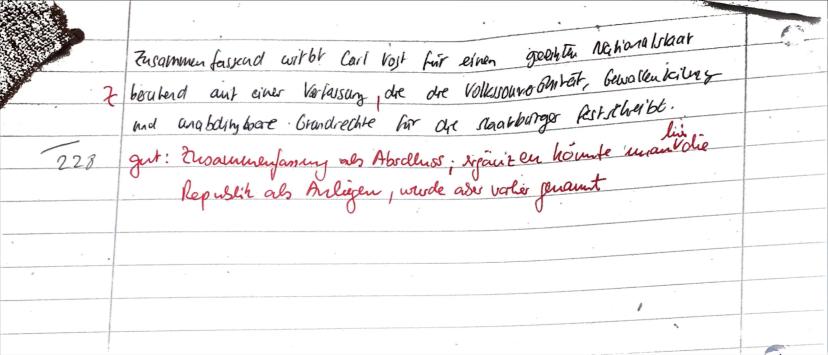 Zusammenfassend wirbt Carl Vogt für einen geeinten Nationalstaat
Z beruhend auf einer Verfassung, die die Volkssouveränität, Gewaltenteilung
und unabdingbare Grundrechte für die Staatsbürger festschreibt.
228 gut: Zusammenfassung als Abschluss; ergänzen könnte man die
Republik als Anliegen, wurde aber vorher genannt